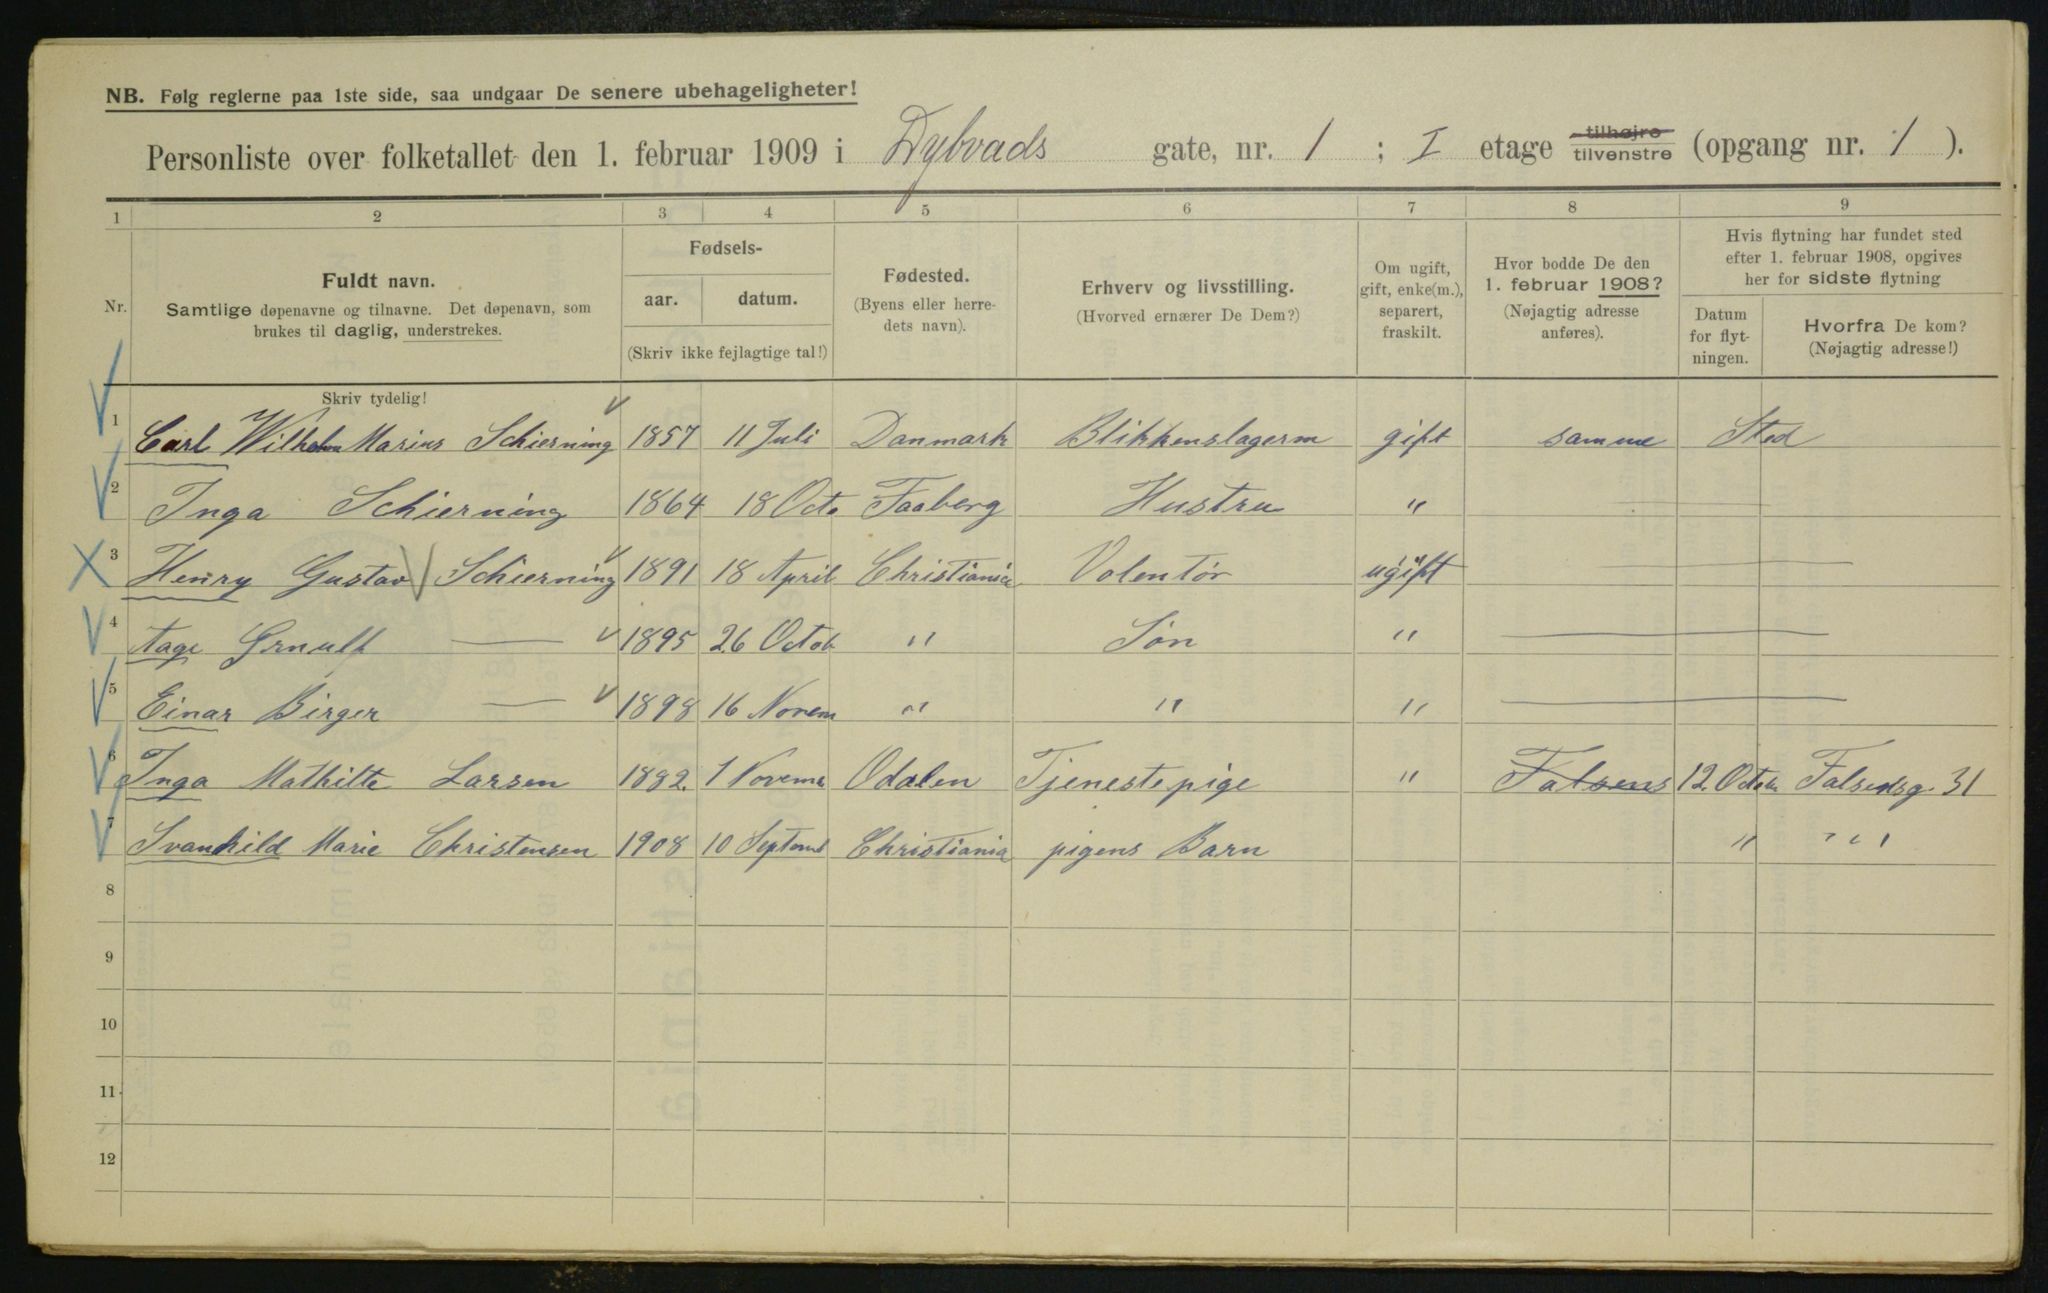 NB. Følg reglerne paa 1ste side, saa undgaar De senere ubehageligheter!
Personliste over folketallet den 1. februar 1909 i Dybvads gate, nr. 1 ; I etage tilhøjre tilvenstre (opgang nr. 1 ).
1 2 3 4 5 6 7 8 9
Nr.
Fuldt navn.
Samtlige døpenavne og tilnavne. Det døpenavn, som
brukes til daglig, understrekes.
Fødsels-
aar. datum.
(Skriv ikke fejlagtige tal!)
Fødested.
(Byens eller herre-
dets navn).
Erhverv og livsstilling.
(Hvorved ernærer De Dem?)
Om ugift,
gift, enke(m.),
separert,
fraskilt.
Hvor bodde De den
1. februar 1908?
(Nøjagtig adresse
anføres).
Hvis flytning har fundet sted
efter 1. februar 1908, opgives
her for sidste flytning
Datum
for flyt-
ningen.
Hvorfra De kom?
(Nøjagtig adresse!)
Skriv tydelig!
1 Carl Wilhelm Marius Schierning 1857 11 Juli Danmark Blikkenslagerm gift samme Sted
2 Inga Schierning 1864 18 Octo Faaberg Hustru "
3 Henry Gustav Schierning 1891 18 April Christiania Volentør ugift
4 Aage — 1895 26 Octob " Søn " —
5 Einar Birger — 1898 16 Novem " " " —
6 Inga Mathilte Larsen 1882. 1 Novemb Odalen Tjenestepige " Falsens 12. Octob Falsensg. 31
7 Svanhild Marie Christensen 1908 10 Septemb Christiania pigens Barn " " "
8
9
10
11
12